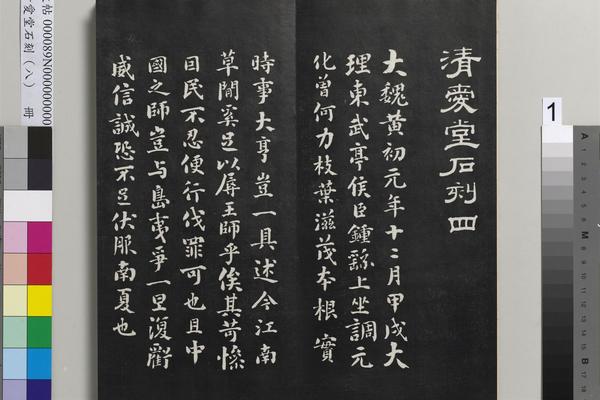 清愛堂石刻四
大魏黃初元年十二月甲戌大
理東武亭侯臣鍾繇上坐調元
化曾何力枝葉滋茂本根實
時事大亨豈一具述今江南
草閒奚足以屏王師乎俟其苛慘
目民不忍便行伐罪可也且中
國之師豈与島夷爭一旦復衂
威信誠恐不足伏服南夏也
帖 000089N000000000
愛堂石刻（八） 冊
1
A
M
B